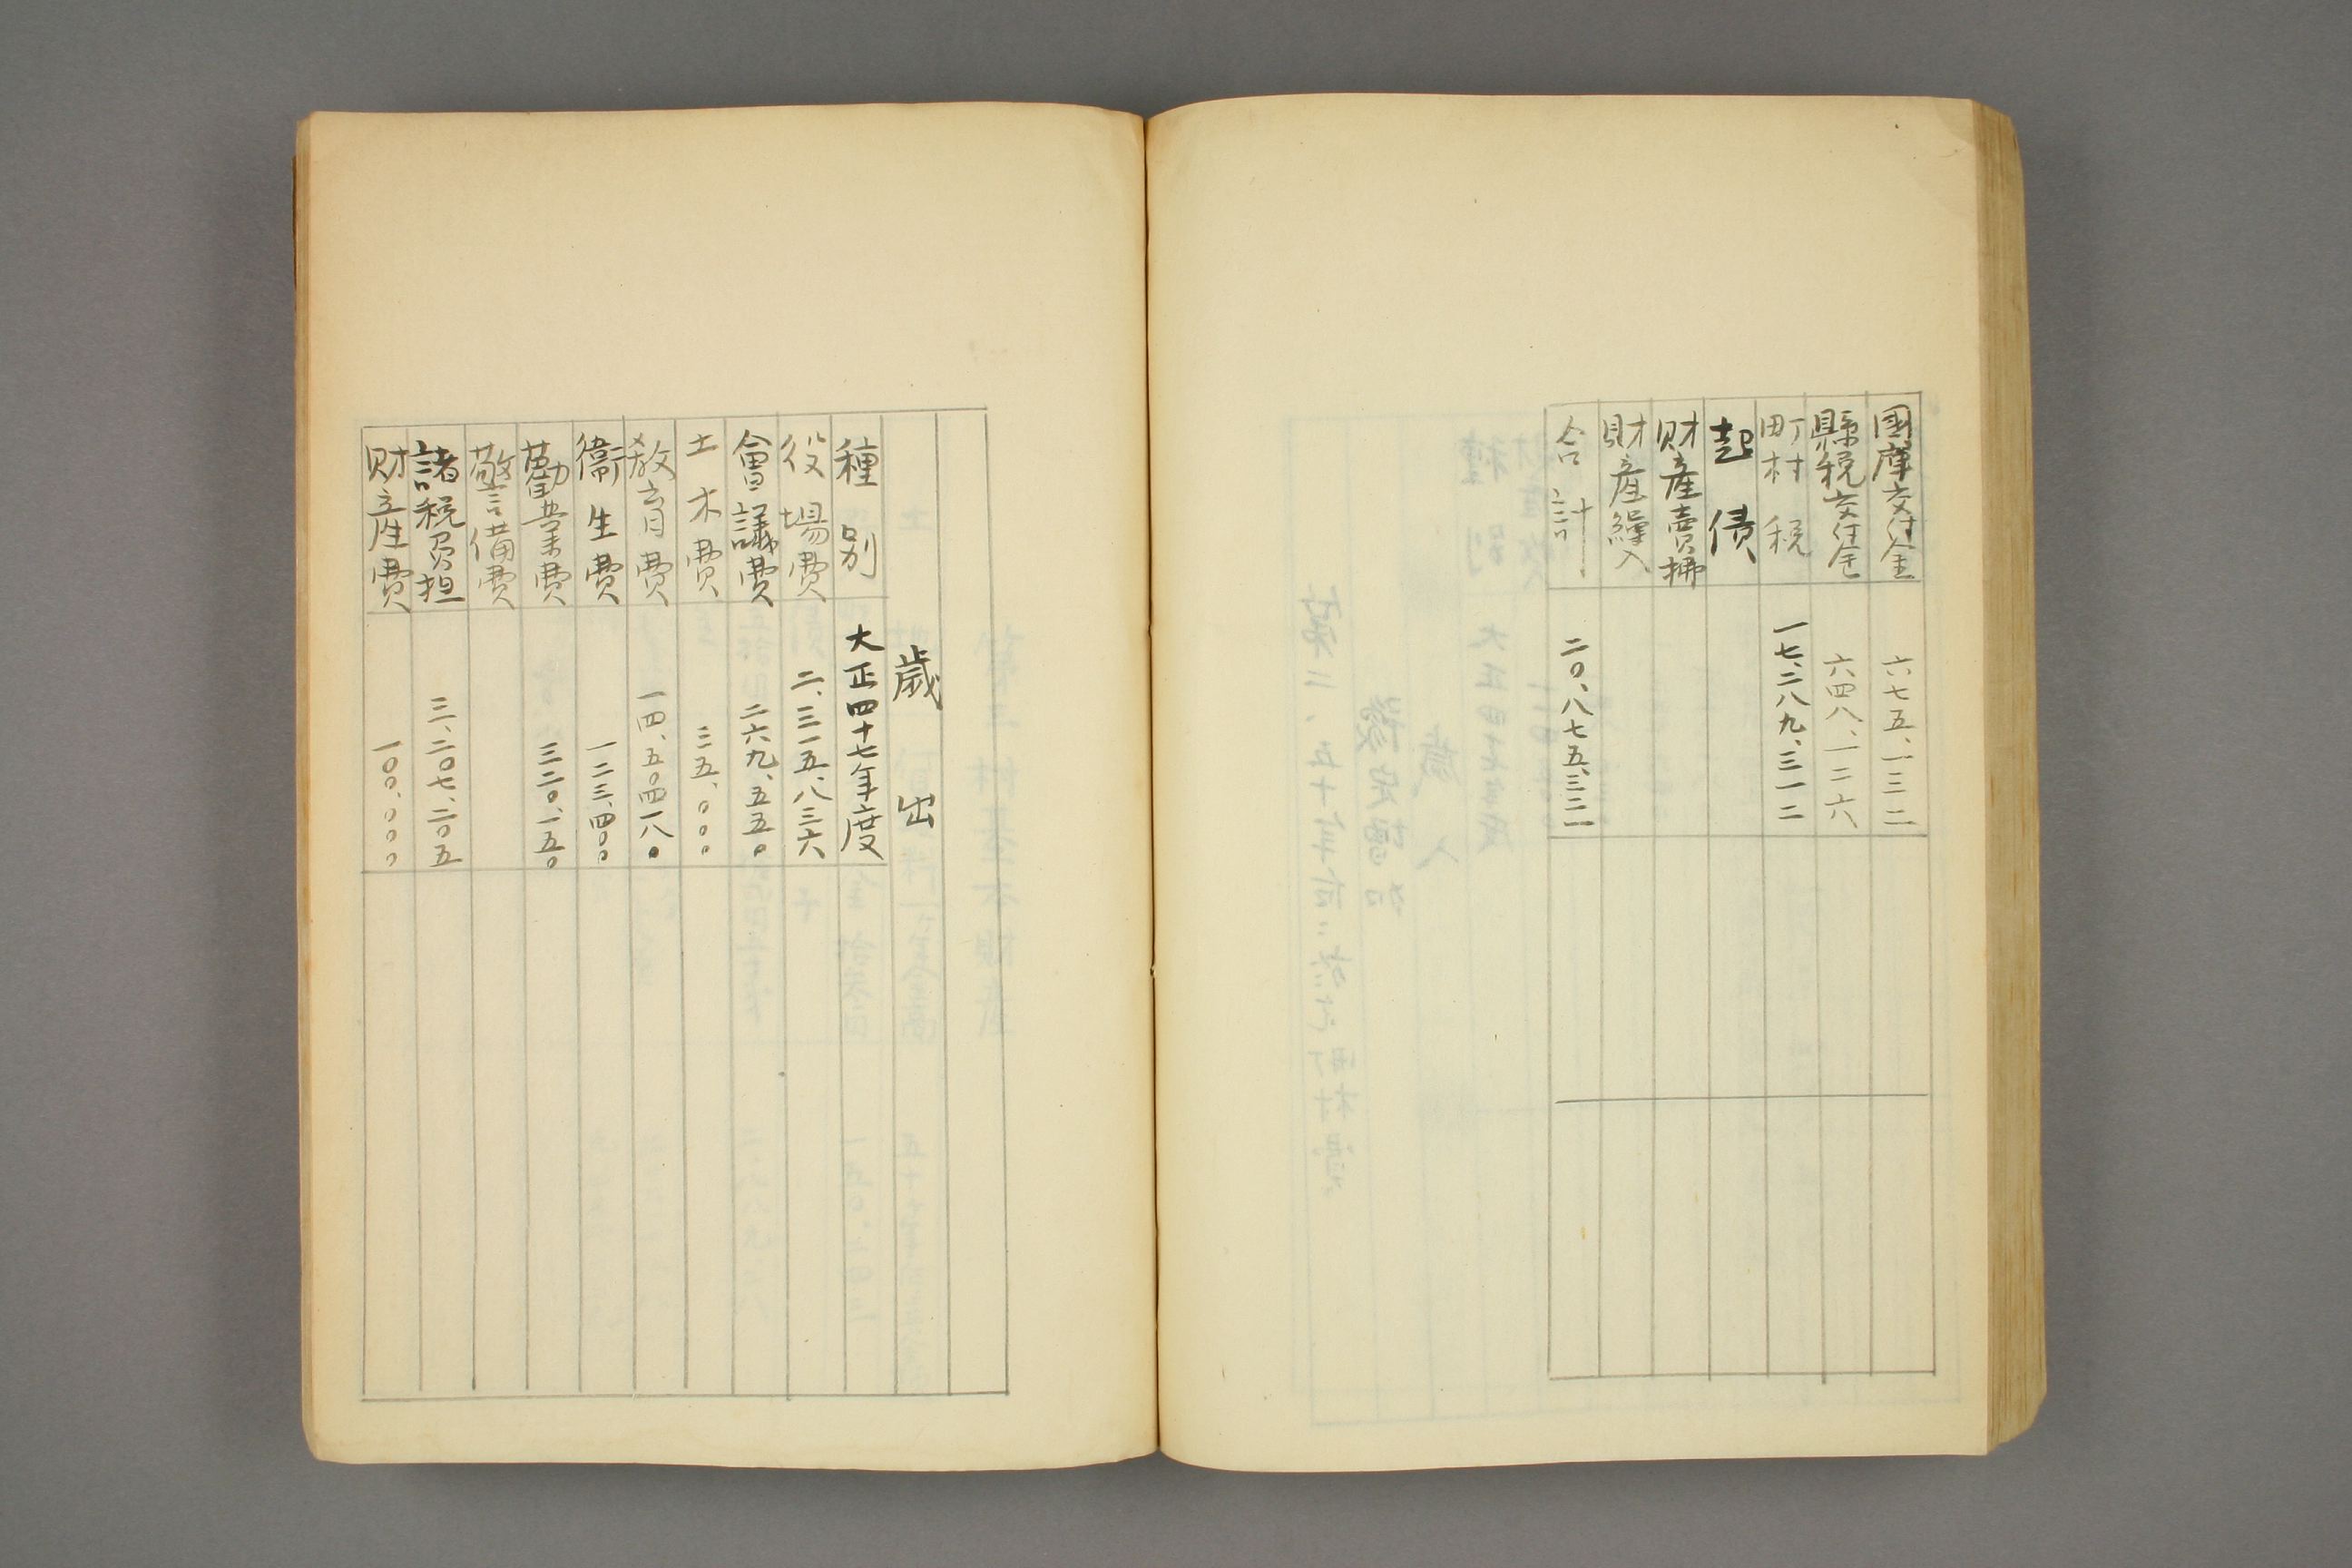 國庫交付金 六七五、一三二
縣税交付金 六四八、一二六
町村税 一七、二八九、三一二
起債
財産賣拂
財産繰入
合計 二〇、八七五、三二一
歳出
種別 大正四十七年度
役場費 二、三一五、八三六
會議費 二六九、五五〇
土木費 三五、〇〇〇
教育費 一四、五〇四一八〇
衞生費 一二三、四〇〇
勸業費 三二〇、一五〇
警備費
諸税負担 三、二〇七、二〇五
財産費 一〇〇、〇〇〇